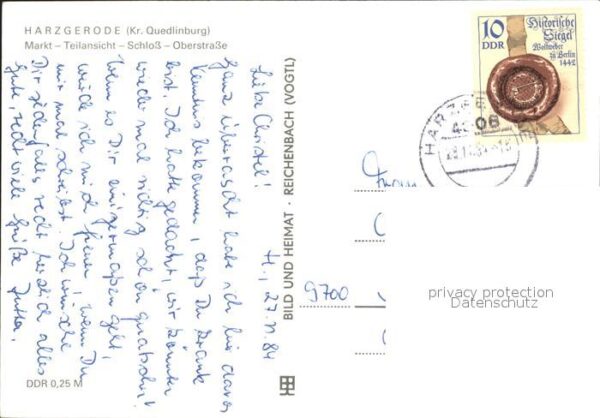 HARZGERODE (Kr. Quedlinburg)
Markt – Teilansicht – Schloß – Oberstraße
10
DDR
Historische
Siegel
Wollweber
zu Berlin
1442
HARZGE
4306
H., 27.11.84
Liebe Christel!
Ganz überrascht habe ich hier davon
Kenntnis bekommen, daß Du krank
bist. Ich hatte gedacht, wir könnten
wieder mal richtig schön quatschen!
Wenn es Dir einigermaßen geht,
würde ich mich freuen, wenn Du
mir mal schreibst. Ich wünsche
Dir jedenfalls recht herzlich alles
Gute, recht viele Grüße Jutta.
BILD UND HEIMAT · REICHENBACH (VOGTL)
9700
privacy protection
Datenschutz
DDR 0,25 M